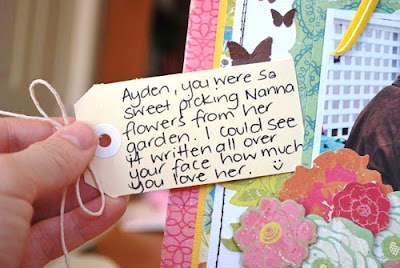 Ayden, you were so
sweet picking Nanna
flowers from her
garden. I could see
it written all over
your face how much
you love her. :)